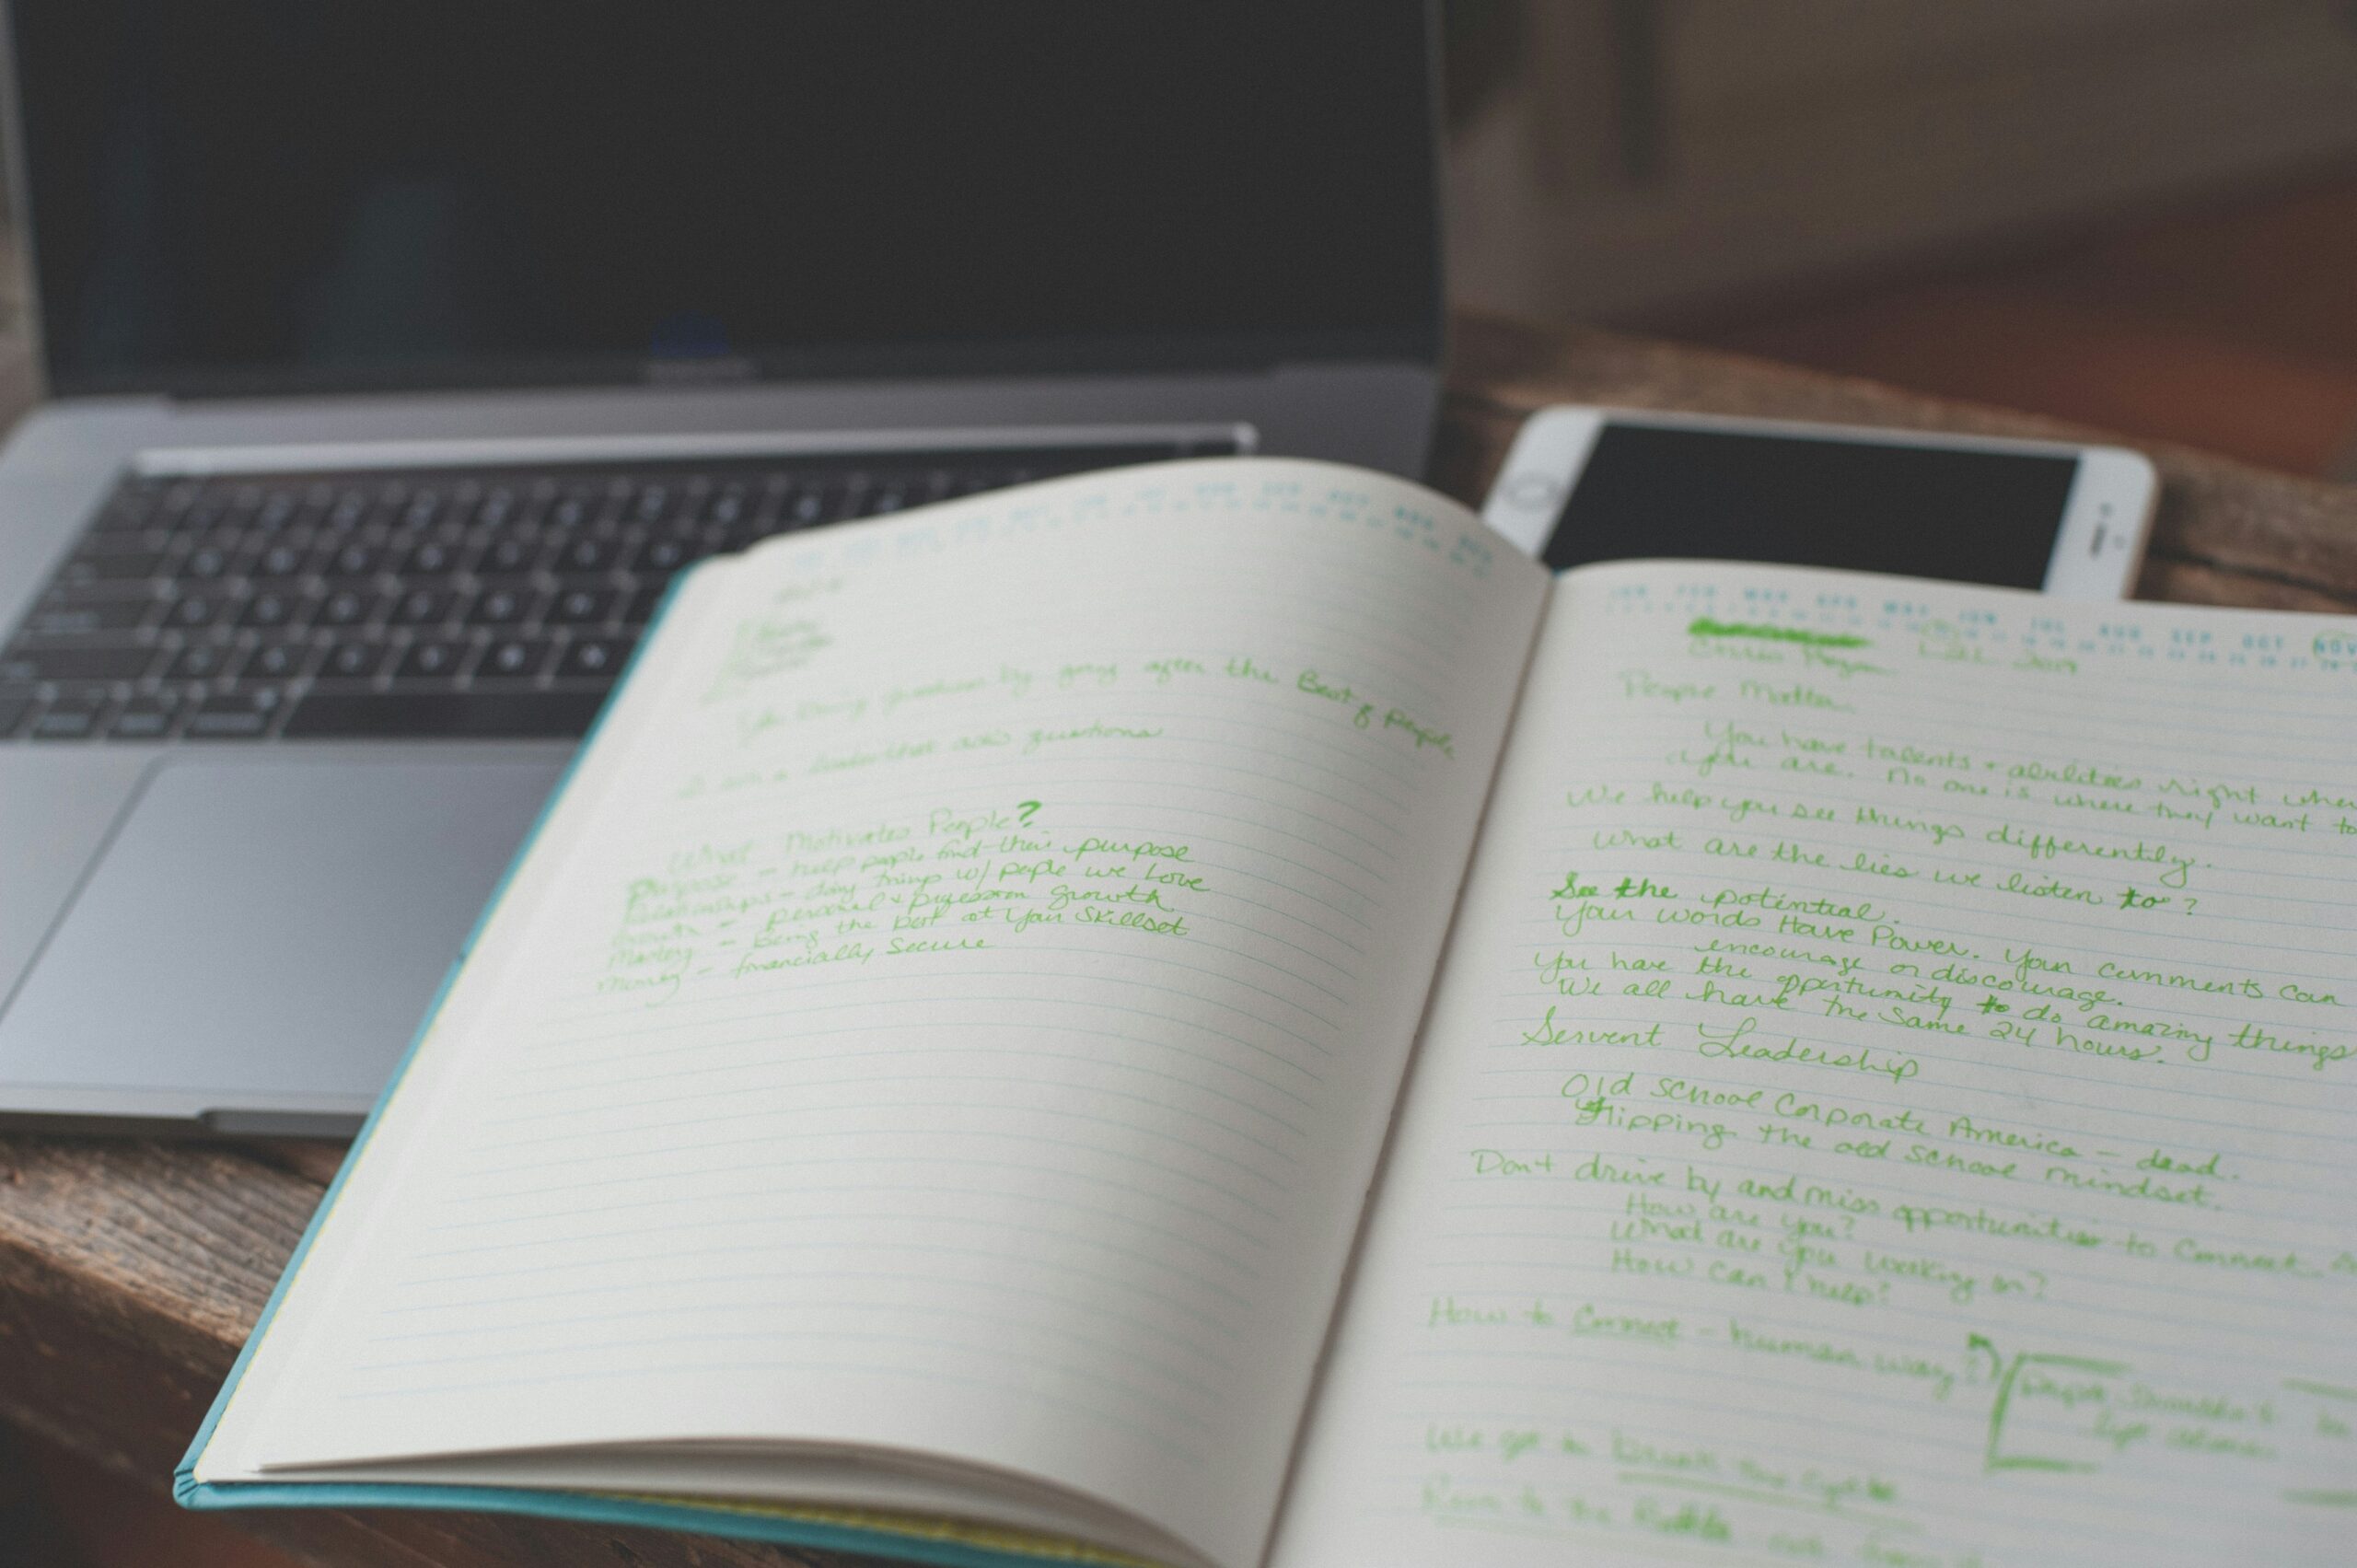 by going after the Best of people
a leader that asks questions
What Motivates People?
Purpose - help people find their purpose
Relationships - doing things w/ people we love
Growth - personal & profession growth
Mastery - Being the best at your skillset
Money - financially secure
JAN FEB MAR APR MAY JUN JUL AUG SEP OCT NOV
People Matter
You have talents + abilities right where
you are. No one is where they want to
We help you see things differently.
What are the lies we listen to?
See the potential.
Your words Have Power. Your comments can
encourage or discourage.
You have the opportunity to do amazing things
We all have the same 24 hours.
Servent Leadership
Old School Corporate America - dead.
Flipping the old school mindset.
Don't drive by and miss opportunities to connect.
How are you?
What are you working on?
How can I help?
How to Connect - human way?
We get to break the cycle